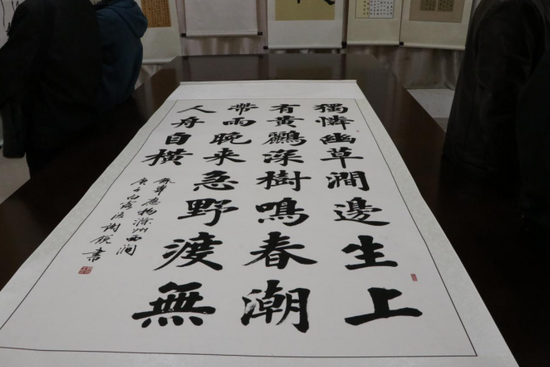 獨憐幽草澗邊生上
有黃鸝深樹鳴春潮
帶雨晚来急野渡無
人舟自橫
韋應物滁州西澗
庚子白露書